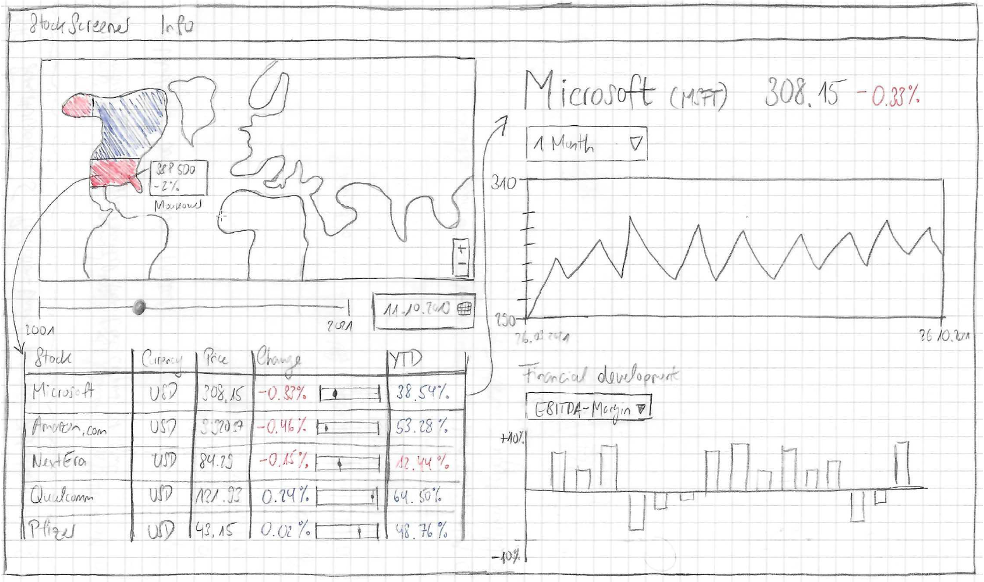 StockScreener Info
388 500
-2%
+
-
2001
2021
11.10.2013
Stock Currency Price Change YTD
Microsoft USD 308,15 -0.33% 38.54%
Amazon.com USD -0.46% 53.28%
NextEra USD 84.29 -0.15% 12.44%
Qualcomm USD 121.93 0.24% 64.50%
Pfizer USD 43,15 0.02% 48.76%
Microsoft (MSFT) 308.15 -0.33%
1 Month
310
290
26.10.2021
Financial development
EBITDA-Margin
+10%
-10%